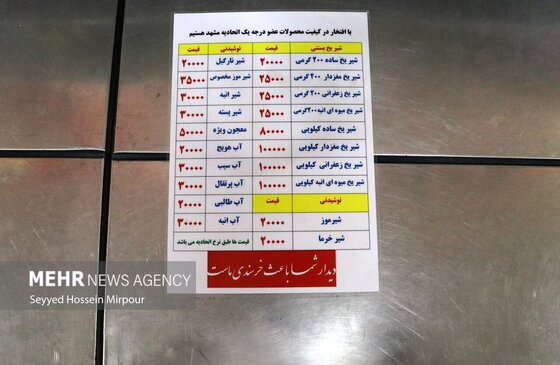 با افتخار در کیفیت محصولات عضو درجه یک اتحادیه مشهد هستیم
شیر یخ بستنی قیمت نوشیدنی قیمت
شیر یخ ساده ۲۰۰ گرمی ۲۰۰۰۰ شیر نارگیل ۲۰۰۰۰
شیر یخ مغزدار ۲۰۰ گرمی ۲۵۰۰۰ شیر موز مخصوص ۳۵۰۰۰
شیر یخ زعفرانی ۲۰۰ گرمی ۲۵۰۰۰ شیر انبه ۳۰۰۰۰
شیر یخ میوه ای انبه ۲۰۰گرمی ۲۵۰۰۰ شیر پسته ۳۰۰۰۰
شیر یخ ساده کیلویی ۸۰۰۰۰ معجون ویژه ۵۰۰۰۰
شیر یخ مغزدار کیلویی ۱۰۰۰۰۰ آب هویج ۲۰۰۰۰
شیر یخ زعفرانی کیلویی ۱۰۰۰۰۰ آب سیب ۳۰۰۰۰
شیر یخ میوه ای انبه کیلویی ۱۰۰۰۰۰ آب پرتقال ۳۰۰۰۰
نوشیدنی قیمت آب طالبی ۲۰۰۰۰
شیرموز ۲۰۰۰۰ آب انبه ۳۰۰۰۰
شیر خرما ۲۰۰۰۰ قیمت ها طبق نرخ اتحادیه می باشد
دیدار شما باعث خرسندی ماست
MEHR NEWS AGENCY
Seyyed Hossein Mirpour